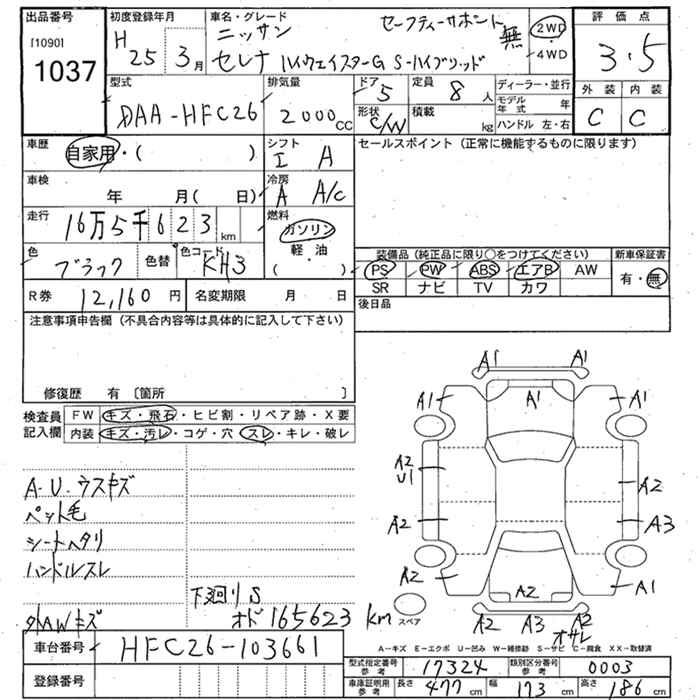 出品番号 [1090] 1037
初度登録年月 H 25年 3月
車名・グレード ニッサン セーフティーサポート 無
セレナ ハイウェイスターG S-ハイブリッド
2WD・4WD
評価点 3.5
外装 内装
C C
型式 DAA-HFC26
排気量 2000cc
ドア 5
形状 C/W
定員 8人
積載 kg
ディーラー・並行
モデル年式 年
ハンドル 左・右
車歴 自家用・( )
シフト I A
セールスポイント (正常に機能するものに限ります)
車検 年 月( 日)
冷房 A A/C
走行 16万5千623km
燃料 ガソリン・軽・油 ( )
色 ブラック
色替
色コード KH3
装備品 (純正品に限り○をつけてください)
新車保証書
PS PW ABS エアB AW
SR ナビ TV カワ
有・無
R券 12,160円
名変期限 月 日
後日品
注意事項申告欄 (不具合内容等は具体的に記入して下さい)
修復歴 有 [箇所 ]
検査員記入欄
FW キズ・飛石・ヒビ割・リペア跡・X要
内装 キズ・汚レ・コゲ・穴・スレ・キレ・破レ
A-U-ウスキズ
ペット毛
シートヘタリ
ハンドルスレ
下廻りS
外AWキズ
オド165623km
A1 A1
A1 A1 A1
A2
U1
A2
A2 A3
A2 A2 A1
A2 A3 A2
オサレ
スペア
A-キズ E-エクボ U-凹み W-補修跡 S-サビ C-腐食 XX-取替済
車台番号 HFC26-103661
登録番号
型式指定番号 参考 17324
類別区分番号 参考 0003
車庫証明用 参考 長さ 477cm 幅 173cm 高さ 186cm